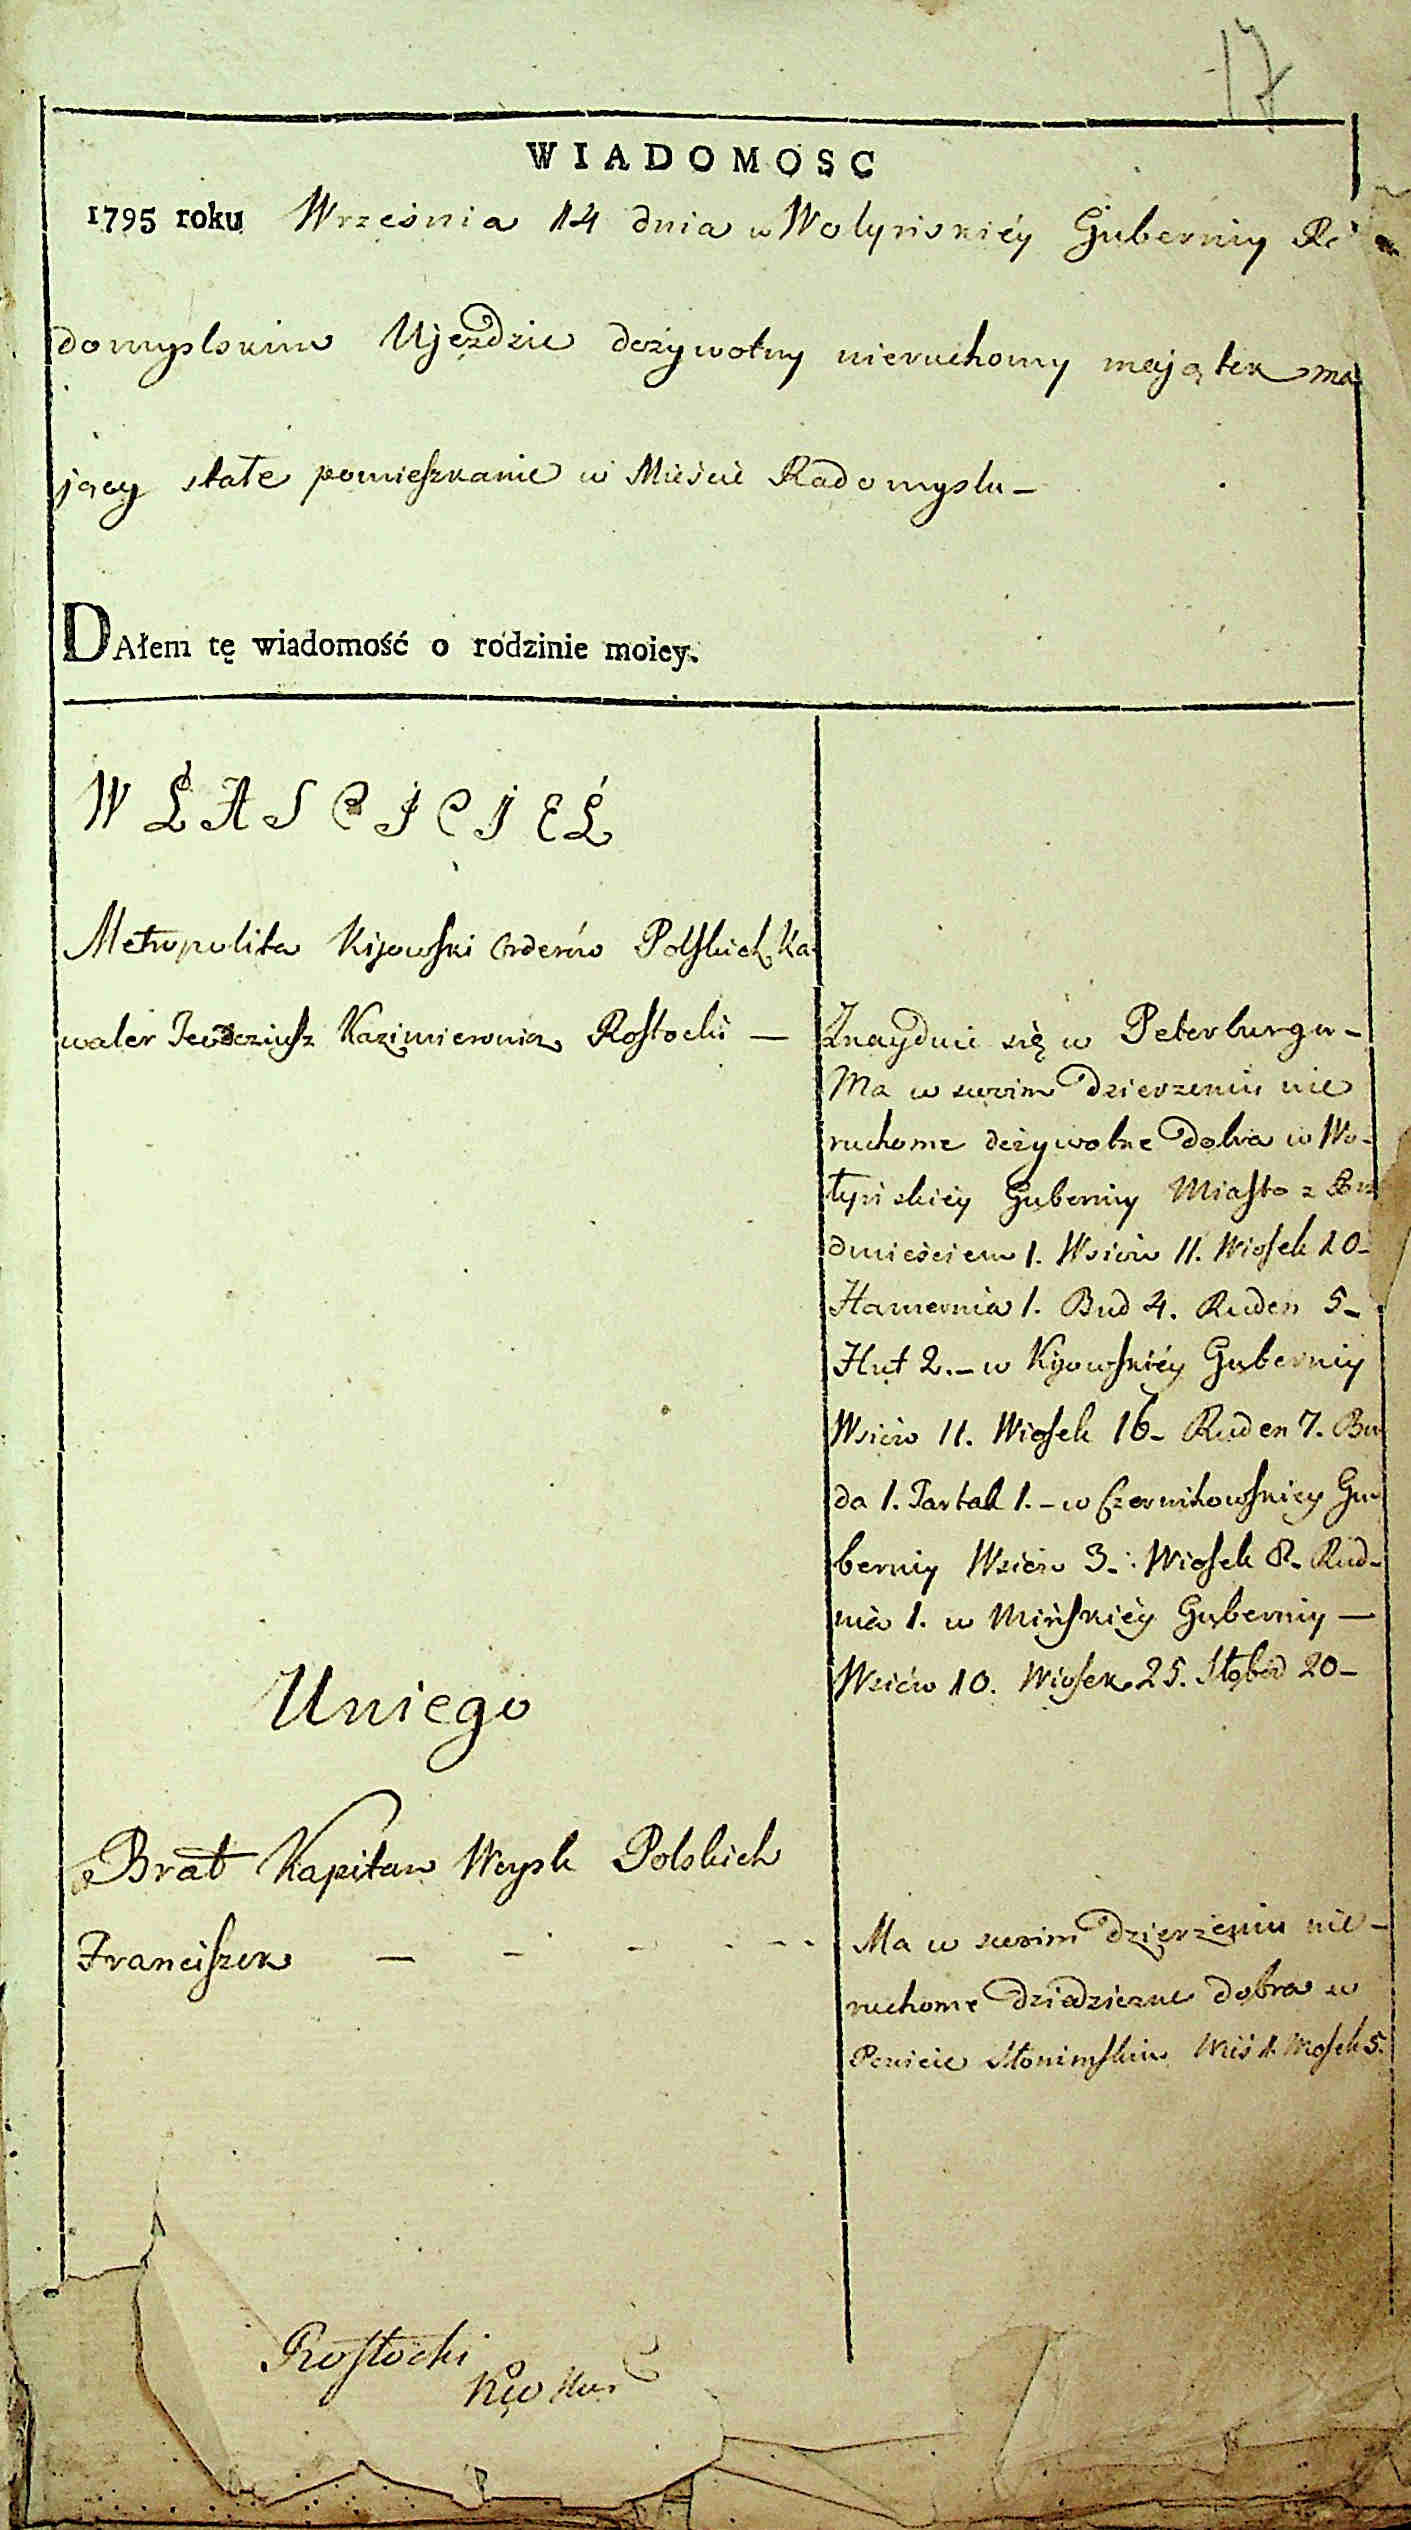 17
WIADOMOSC
1795 roku Września 14 dnia w Wołyńskiéy Guberniy Ra
domyslskim Ujezdzie dożywotny nieruchomy maiątek ma
jący stałe pomieszkanie w Mieście Radomyslu –
DAłem tę wiadomość o rodzinie moiey.
WŁASCICIEL
Metropolita Kijowski Orderów Polskich Ka
waler Teodoziusz Kazimierowicz Rostocki —
Znayduie się w Peterburgu –
Ma w swoim dzierzeniu nie
ruchome dożywotne dobra w Wo-
łyńskiéy Guberniy Miasto z Prze
dmieściem 1. Wsiów 11. Wiosek 10–
Hamernia 1. Bud 4. Ruden 5–
Hut 2.– w Kijowskiéy Guberniy
Wsiów 11. Wiosek 16– Ruden 7. Bu
da 1. Tartak 1.– w Czernihowskiey Gu-
berniy Wsiów 3. Wiosek 8– Rud–
nia 1. w Mińskiéy Guberniy —
Wsiów 10. Wiosek 25. Słobód 20–
Uniego
Brat Kapitan Woysk Polskich
Franciszek — – – - - -
Ma w swoim dzierżeniu nie–
ruchome dziedziczne dobra w
Powiecie Słonimskim Wieś 1. Wiosek 5.
Rostocki